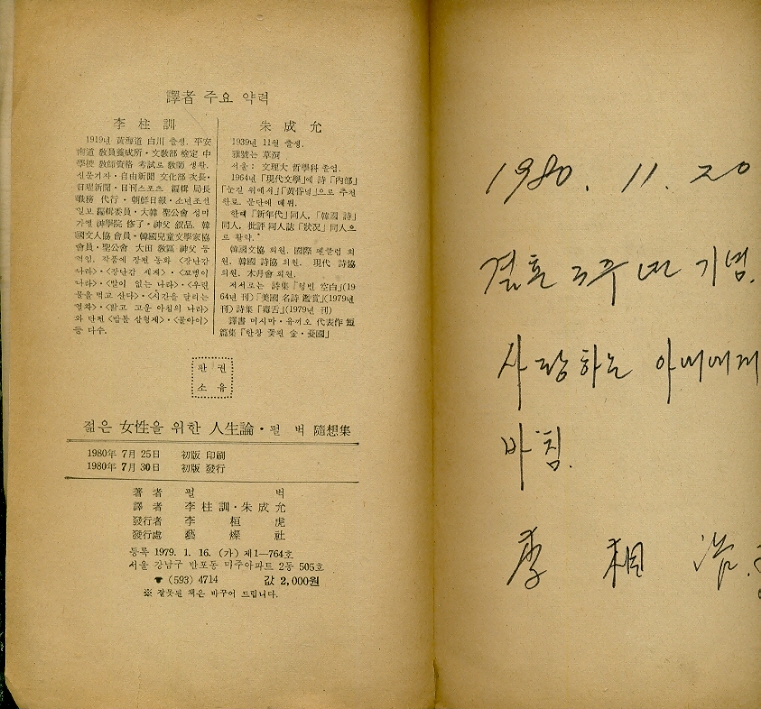 譯者 주요 약력
李柱訓
1919년 黃海道 白川 출생. 平安
南道 敎員養成所·文敎部 檢定 中
學校 敎師資格 考試로 敎師 생활.
신문기자·自由新聞 文化部 次長·
日刊스포츠 編輯 局長
職務 代行·朝鮮日報·소년조선
일보 編輯委員·大韓 聖公會 성미
가엘 神學院 修了·神父 敍品. 韓
國文人協會員·韓國兒童文學家協
會員·聖公會 大田 敎區 神父 등
역임. 작품에 장편 동화 〈장난감
나라〉·〈장난감 세계〉·
나라〉·〈발이 없는 나라〉·〈우린
물을 먹고 산다〉·〈시간을 달리는
영화〉·〈밝고 고운 아침의 나라〉
와 단편
등 다수.
朱成允
1939년 11월 출생.
雅號는 草洞
서울 : 文理大 哲學科 졸업.
1964년 「現代文學」에 詩 「內部」
「눈길 위에서」「黃昏녘」으로 추천
완료. 문단에 데뷔.
한때 「新年代」同人. 「韓國 詩」
同人. 批評 同人誌 「狀況」同人으
로 활약.
韓國文協 회원. 國際 펜클럽 회
원. 韓國 詩協 회원. 現代 詩協
회원. 木月會 회원.
저서로는 詩集 空白」(19
64년 刊)「美國 名詩 鑑賞」(1979년
刊) 詩集「毒舌」(1979년 刊)
譯書 미시마·유끼오 代表作 短
篇集 金·憂國」
판권
소유
젊은 女性을 위한 人生論·펄 벅 隨想集
1980年 7月 25日 初版 印刷
1980年 7月 30日 初版 發行
著者 펄 벅
譯者 李柱訓·朱成允
發行者 李桓虎
發行處 藝燦社
등록 1979. 1. 16. (가) 제1—764호
서울 강남구 반포동 미주아파트 2동 505호
☎ (593) 4714 값 2,000원
※ 잘못된 책은 바꾸어 드립니다.
1980. 11. 20
결혼 3주년 기념.
사랑하는 아내에게
바침.
李相浩